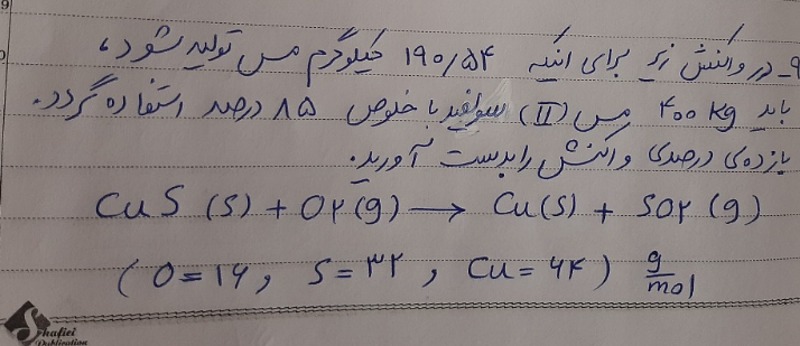 ۹_ در واکنش زیر برای اینکه ۱۹۰/۵۴ کیلوگرم مس تولید شود،
باید ۴۰۰ kg مس (II) سولفید با خلوص ۸۵ درصد استفاده گردد.
بازده‌ی درصدی واکنش را بدست آورید.
CuS (s) + O۲ (g) → Cu(s) + SO۲ (g)
(O = ۱۶, S = ۳۲, Cu = ۶۴) g/mol
Shafiei
Publication